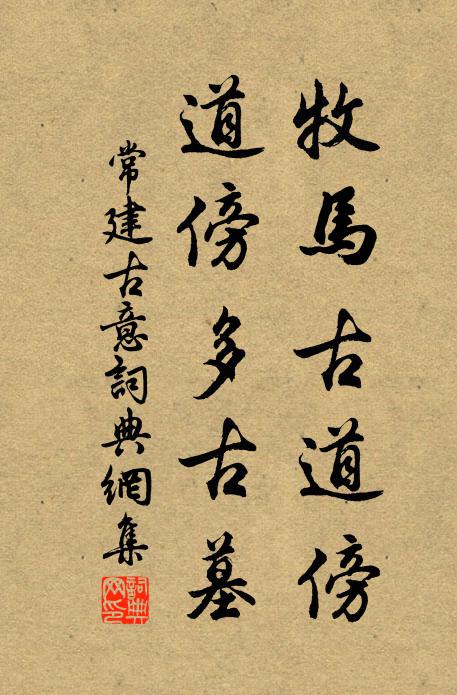 牧馬古道傍
道傍多古墓
常建古意詞典網集
詞典
网印